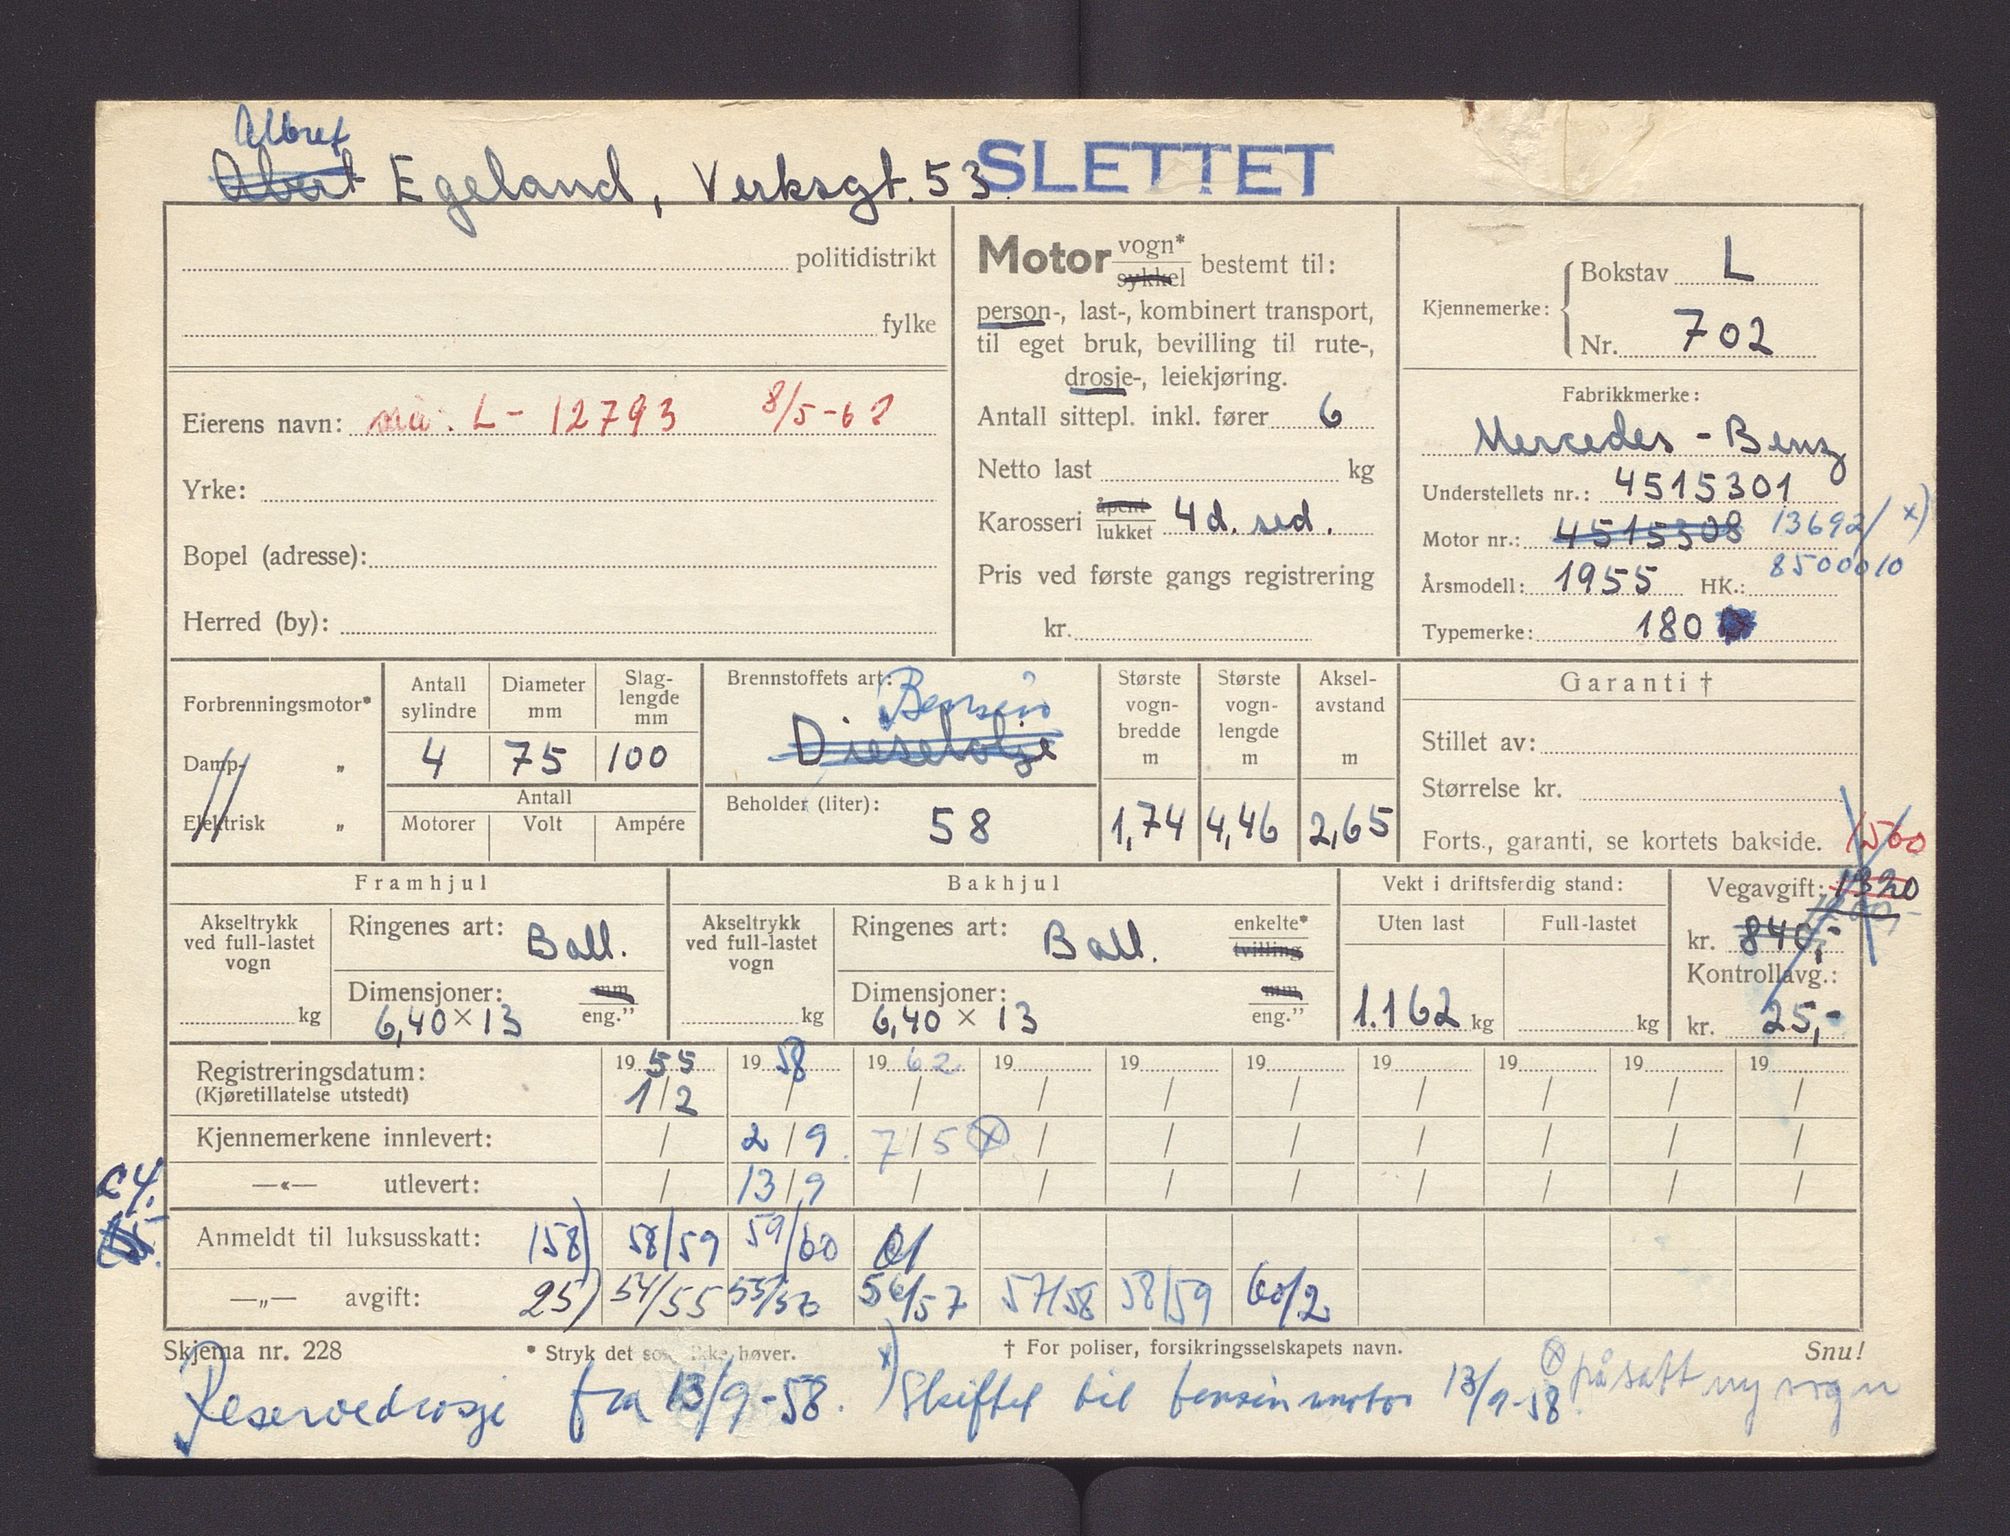 Albret
Abert Egeland, Verksgt. 53 SLETTET
politidistrikt
fylke
Eierens navn: nå: L- 12793 8/5-62
Yrke:
Bopel (adresse):
Herred (by):
Motor vogn* bestemt til:
sykkel
person-, last-, kombinert transport,
til eget bruk, bevilling til rute-,
drosje-, leiekjøring.
Antall sittepl. inkl. fører 6
Netto last kg
Karosseri åpent 4d. sed.
lukket
Pris ved første gangs registrering
kr.
Kjennemerke:
Bokstav L
Nr. 702
Fabrikkmerke:
Mercedes - Benz
Understellets nr.: 4515301
Motor nr.: 4515308 13692/ x)
8500010
Årsmodell: 1955 HK.:
Typemerke: 180
Forbrenningsmotor*
Damp- „
Elektrisk „
Antall sylindre
Diameter mm
Slag- lengde mm
4 75 100
Antall
Motorer Volt Ampére
Brennstoffets art: Bensin
Dieselolje
Beholder (liter): 58
Største vogn- bredde m
Største vogn- lengde m
Aksel- avstand m
1,74 4,46 2,65
Garanti †
Stillet av:
Størrelse kr.
Forts., garanti, se kortets bakside. 1560
Framhjul
Akseltrykk ved full-lastet vogn
kg
Ringenes art: Ball.
Dimensjoner: mm
6,40 × 13 eng."
Bakhjul
Akseltrykk ved full-lastet vogn
kg
Ringenes art: Ball. enkelte*
tvilling
Dimensjoner: mm
6,40 × 13 eng."
Vekt i driftsferdig stand:
Uten last Full-lastet
1.162 kg kg
Vegavgift: 1320
kr. 840,-
Kontrollavg.:
kr. 25,-
Registreringsdatum: 1955 1958 1962 19 19 19 19 19 19 19
(Kjøretillatelse utstedt) 1/2 / / / / / / / / /
Kjennemerkene innlevert: / 2/9 7/5 ⊗ / / / / / / /
—«— utlevert: / 13/9 / / / / / / / /
Anmeldt til luksusskatt: 158) 58/59 59/60 61
—„— avgift: 25) 54/55 55/56 56/57 57/58 58/59 60/2
Skjema nr. 228 * Stryk det som ikke høver. † For poliser, forsikringsselskapets navn. Snu!
Reservedrosje fra 13/9-58. x) Skiftet til bensinmotor 13/9-58. ⊗ påsatt ny vogn